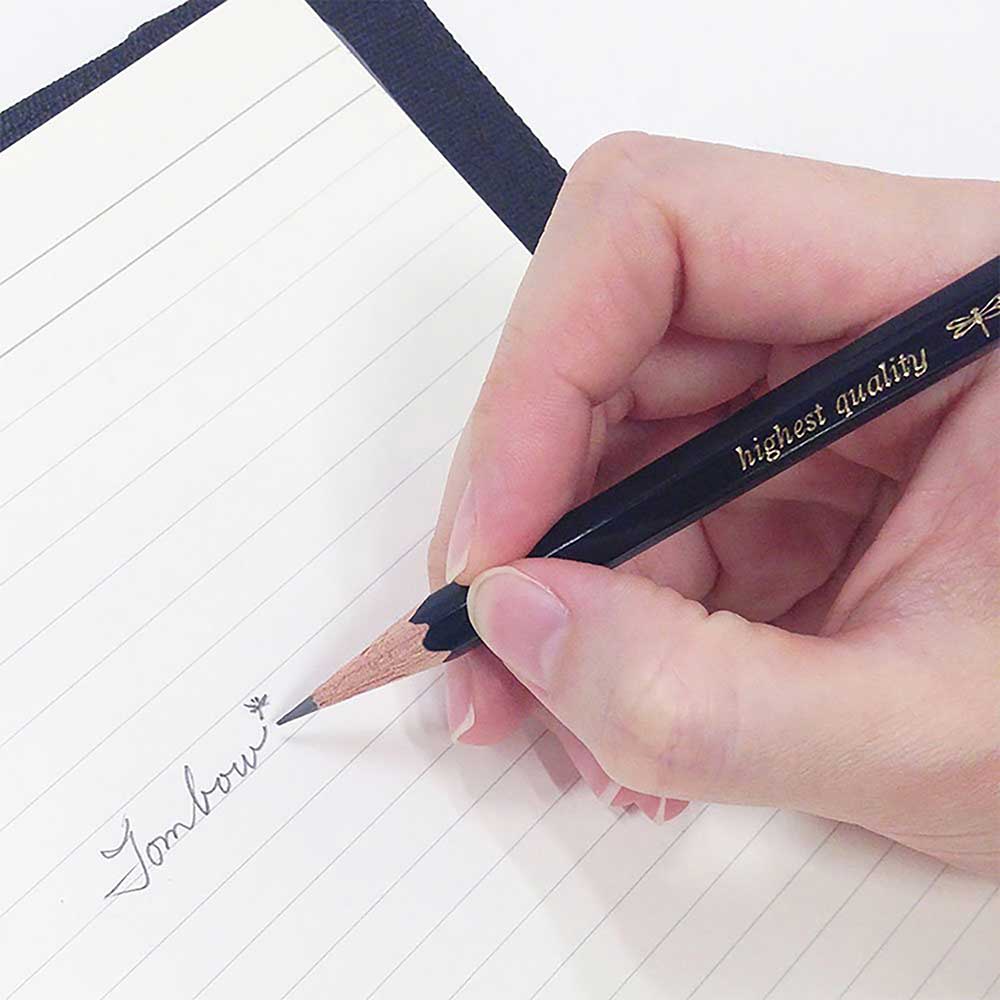 highest quality
Tombow